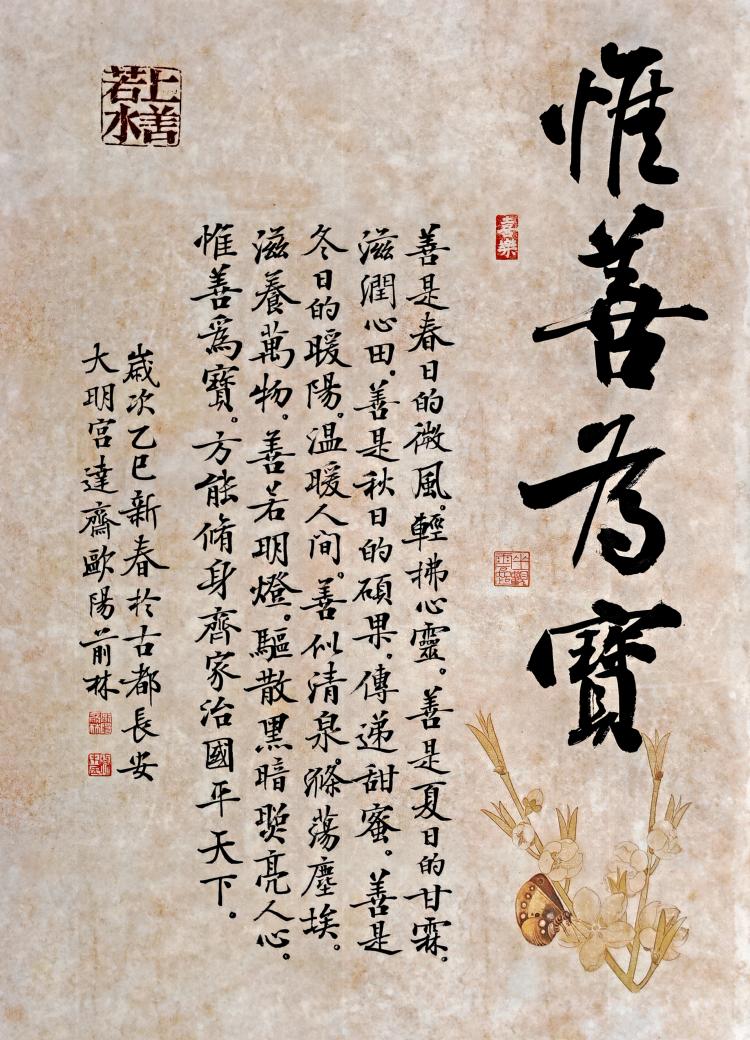 惟善为寶
喜樂
善是春日的微風。輕拂心靈。善是夏日的甘霖。
滋潤心田。善是秋日的碩果。傳递甜蜜。善是
冬日的暖陽。温暖人间。善似清泉。滌蕩塵埃。
滋養萬物。善若明燈。驅散黑暗照亮人心。
惟善爲寶。方能脩身齊家治國平天下。
歲次乙巳新春於古都長安
大明宫達齋歐陽前林
上善
若水